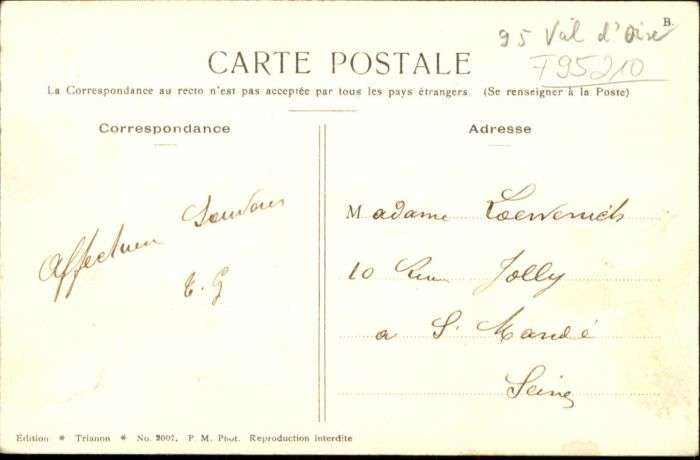 B.
95 Val d'Oise
F95210
CARTE POSTALE
La Correspondance au recto n'est pas acceptée par tous les pays étrangers. (Se renseigner à la Poste)
Correspondance
Adresse
Affectueux Souvenir
E. G
Madame Loewenich
10 Rue Jolly
a St Mandé
Seine
Édition * Trianon * No. 2007. P. M. Phot. Reproduction interdite